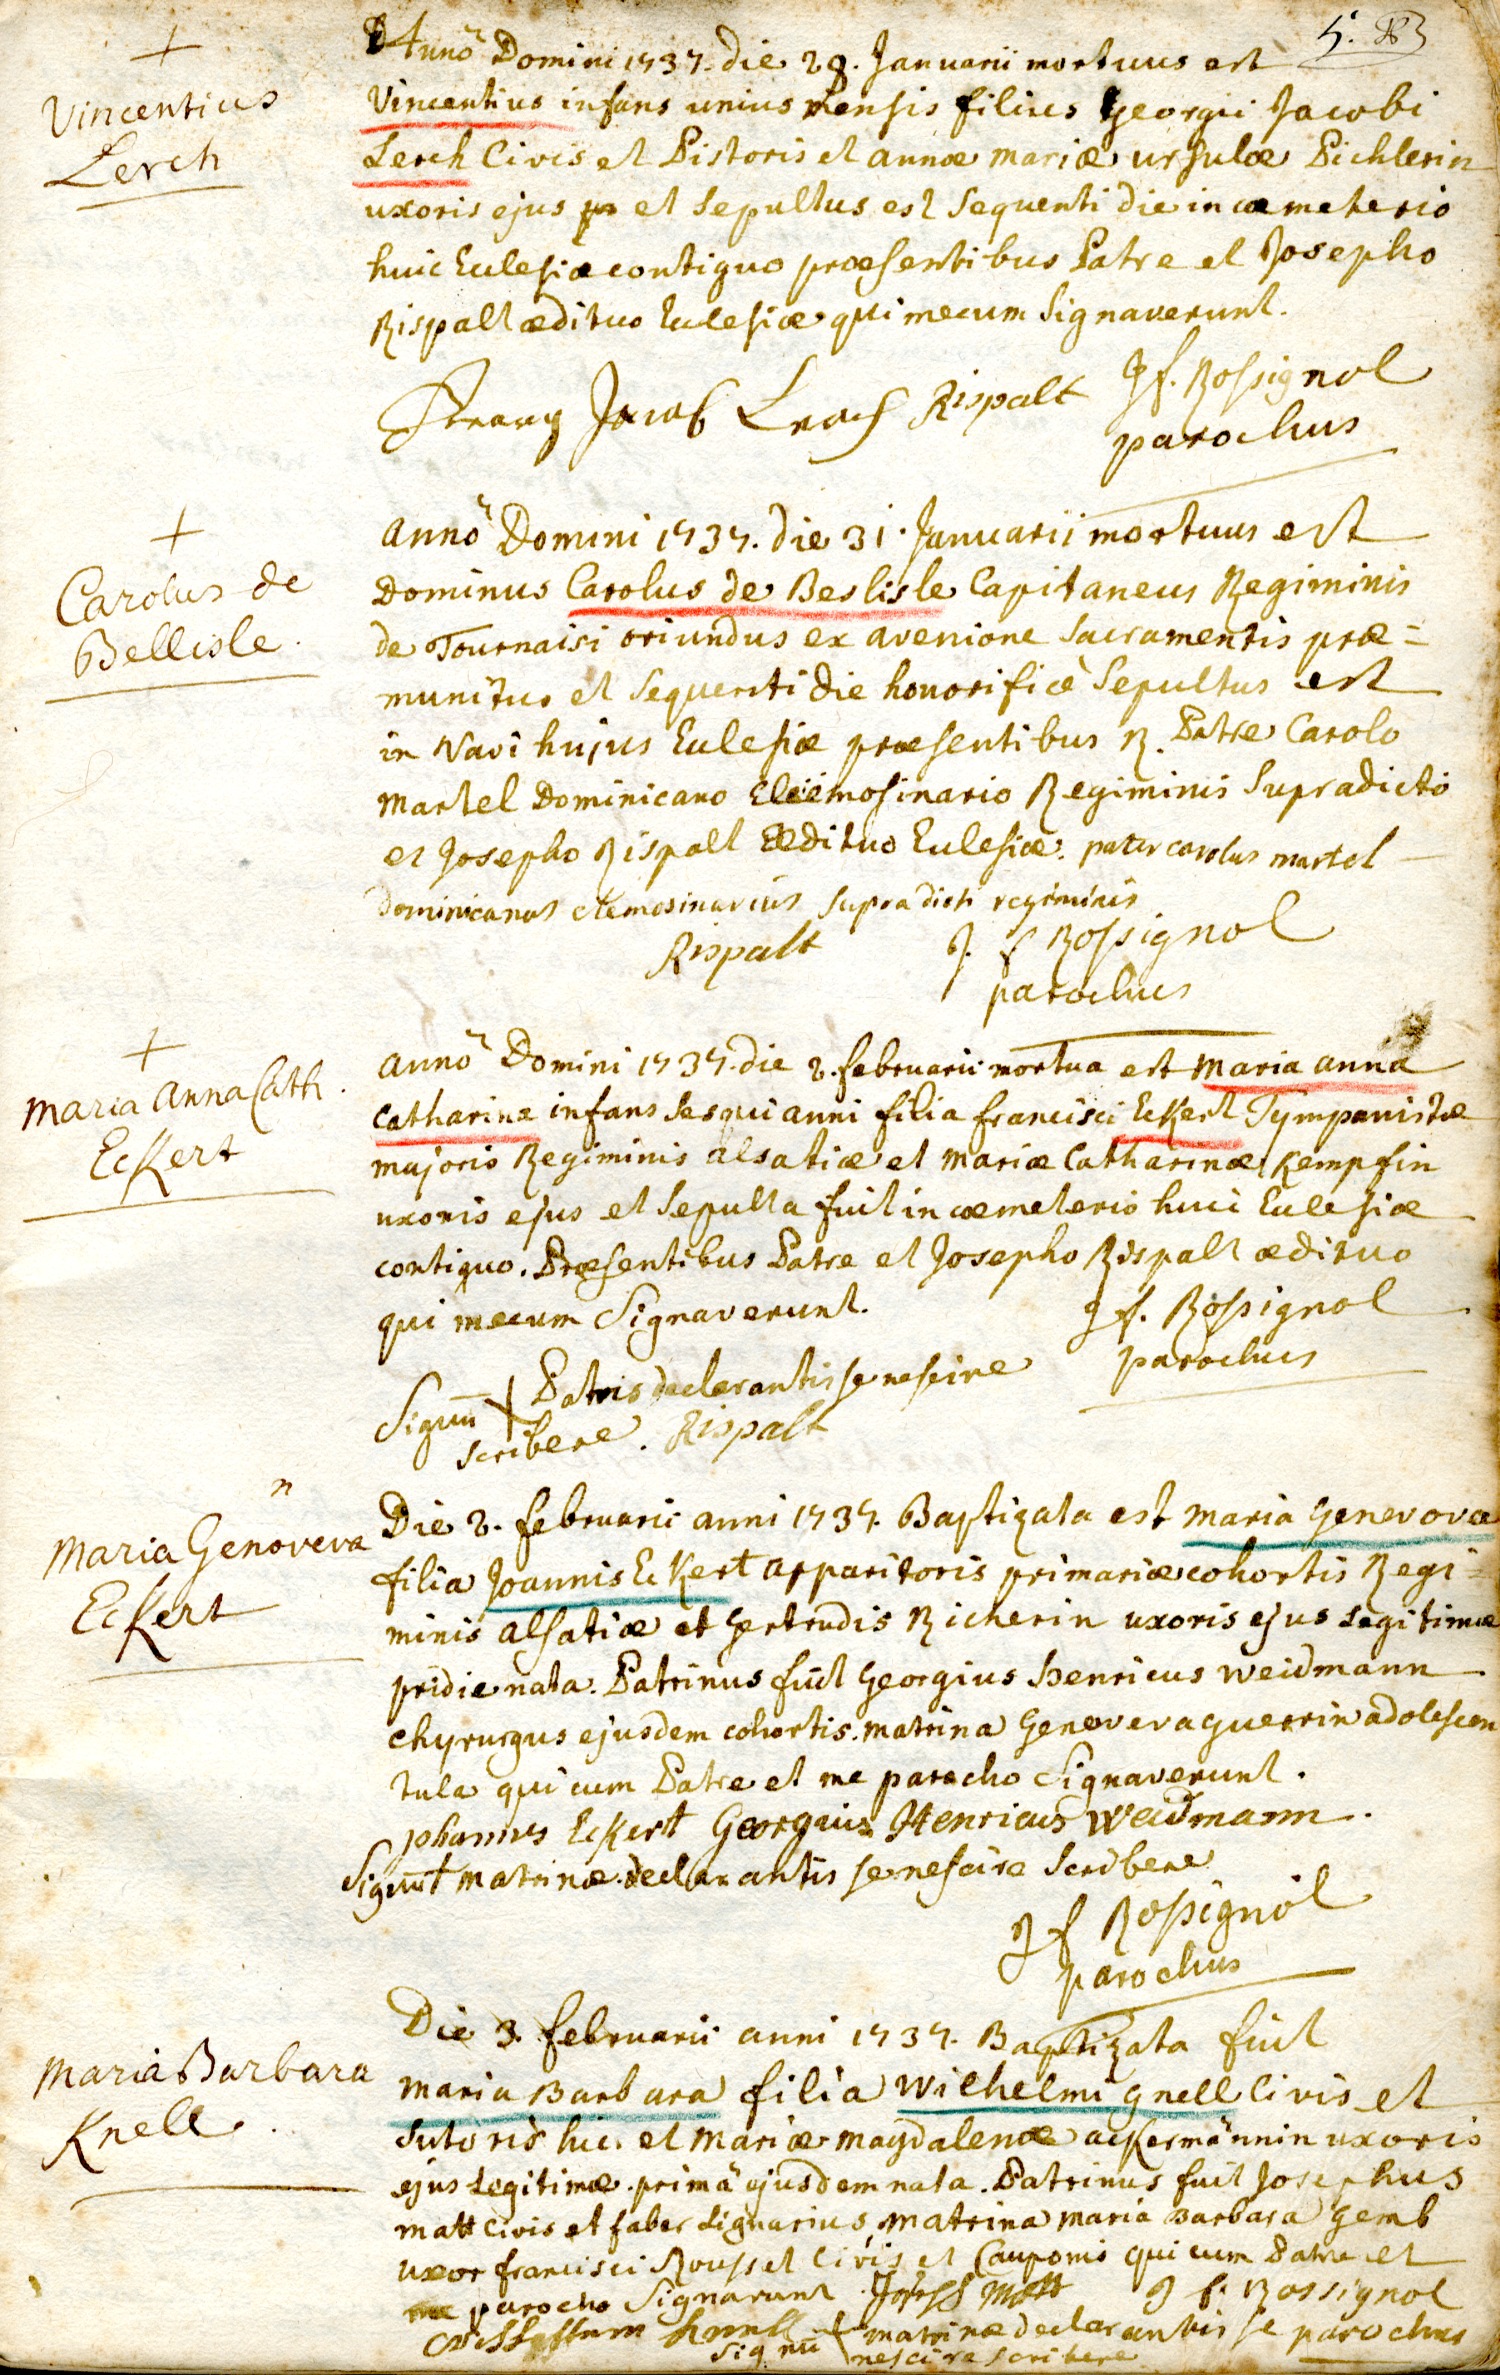 5.
Vincentius
Lerch
Annõ Domini 1737. die 28. Januarii mortuus est
Vincentius infans unius Mensis filius Georgii Jacobi
Lerch Civis et Pistoris et annæ mariæ ursulæ Pichlerin
uxoris ejus et Sepultus est Sequenti die in cæmeterio
huic Eclesiæ contiguo præsentibus Patre et Josepho
Rispalt ædituo Eclesiæ qui mecum Signaverunt.
Jacob Lerch Rispalt J f. Rossignol
parochus
Carolus de
Bellisle.
Annõ Domini 1737. die 31. Januarii mortuus est
Dominus Carolus de Beslisle Capitaneus Regiminis
de Tournaisi oriundus ex avenione Sacramentis præ=
munitus et Sequenti die honorificè Sepultus est
in Navi hujus Eclesiæ præsentibus R. Patre Carolo
Martel Dominicano Eleemosinario Regiminis Supradicto
et Josepho Rispalt Ædituo Eclesiæ. pater carolus martel
dominicanus elemosinarius supra dicti regiminis
Rispalt J. f Rossignol
parochus
Maria Anna Cath.
Eckert
Annõ Domini 1737. die 2. februarii mortua est Maria anna
Catharina infans Sesqui anni filia francisci Eckert Tympanistæ
majoris Regiminis alsatiæ et Mariæ Catharinæ Kempfin
uxoris ejus et Sepulta fuit in cæmeterio huic Eclesiæ
contiguo. Præsentibus Patre et Josepho Rispalt ædituo
qui mecum Signaverunt. J f. Rossignol
parochus
Signũ Patris declarantis se nescire
scribere. Rispalt
n
Maria Genoveva
Eckert
Die 2. februarii anni 1737. Baptizata est Maria Genevova
filia Joannis Eckert apparitoris primariæ cohortis Regi=
minis alsatiæ et Gertrudis Richerin uxoris ejus Legitimæ
pridie nata. Patrinus fuit Georgius Henricus Weidmann
Chyrurgus ejusdem cohortis. matrina Genoveva guerrin adolescen
tula qui cum Patre et me parocho Signaverunt.
Johannes Eckert Georgius Henricus Weidmann.
Signũ matrinæ declarantis se nescire Scribere
J f Rossignol
parochus
Maria Barbara
Knell.
Die 3. februarii anni 1737. Baptizata fuit
Maria Barbara filia Wilhelmi gnell Civis et
Sutoris hic et Mariæ Magdalenæ ackermännin uxoris
ejus Legitimæ. primâ ejusdem nata. Patrinus fuit Josephus
matt Civis et faber Lignarius, Matrina Maria Barbara gemb
uxor francisci Rousset Civis et Cauponis qui cum Patre et
me parocho Signarunt. Joseph Matt J f. Rossignol
Knell Signũ matrinæ declarantis se parochus
nescire scribere